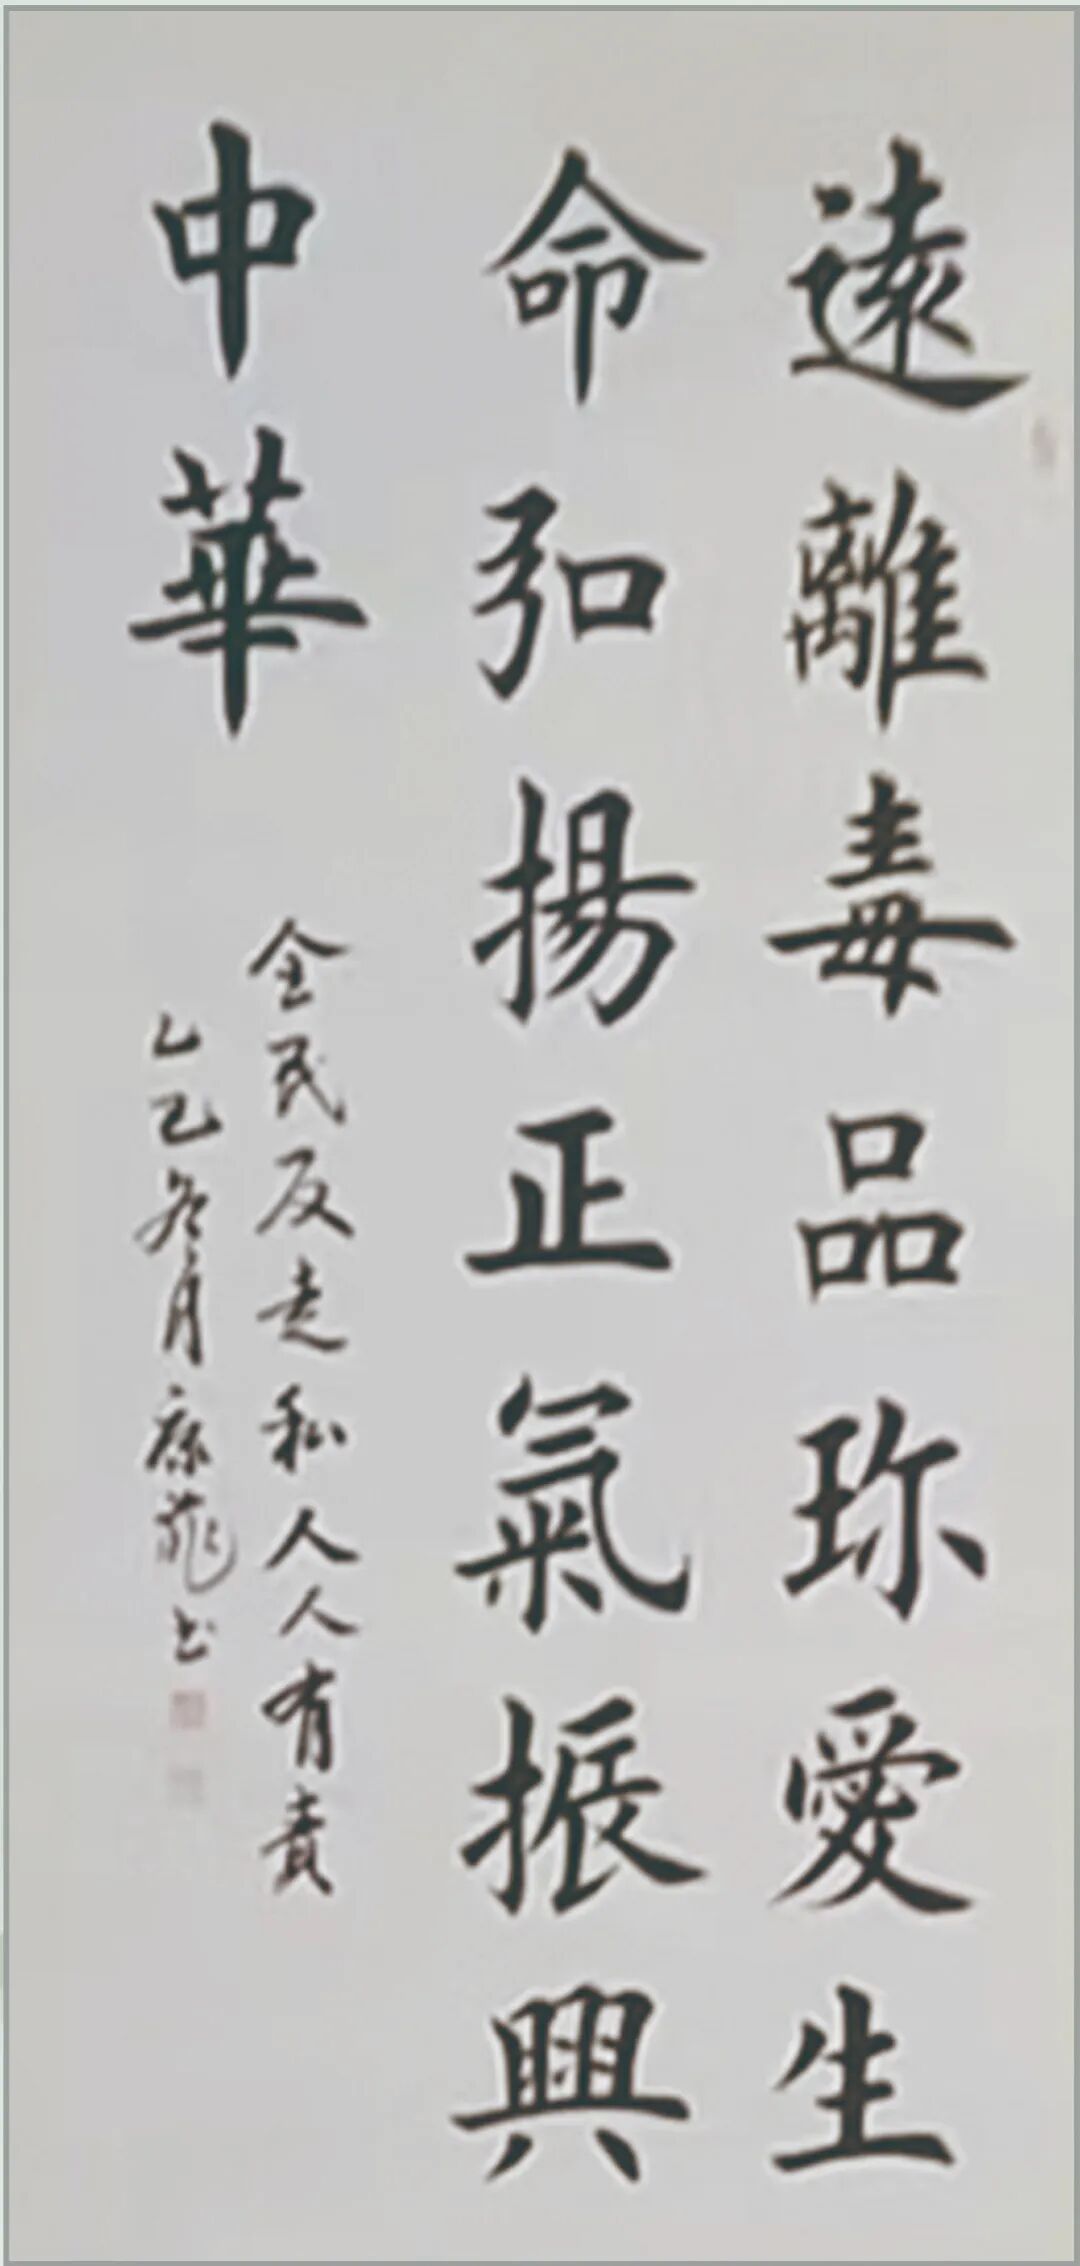 遠離毒品珎愛生
命弘揚正氣振興
中華
全民反走私人人有責
乙巳冬月康 书